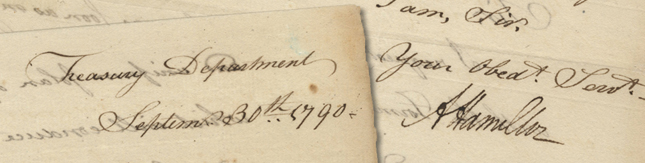 Treasury Department
Septemr. 30th. 1790.
I am, Sir.
Your Obedt. Servt.
AHamilton